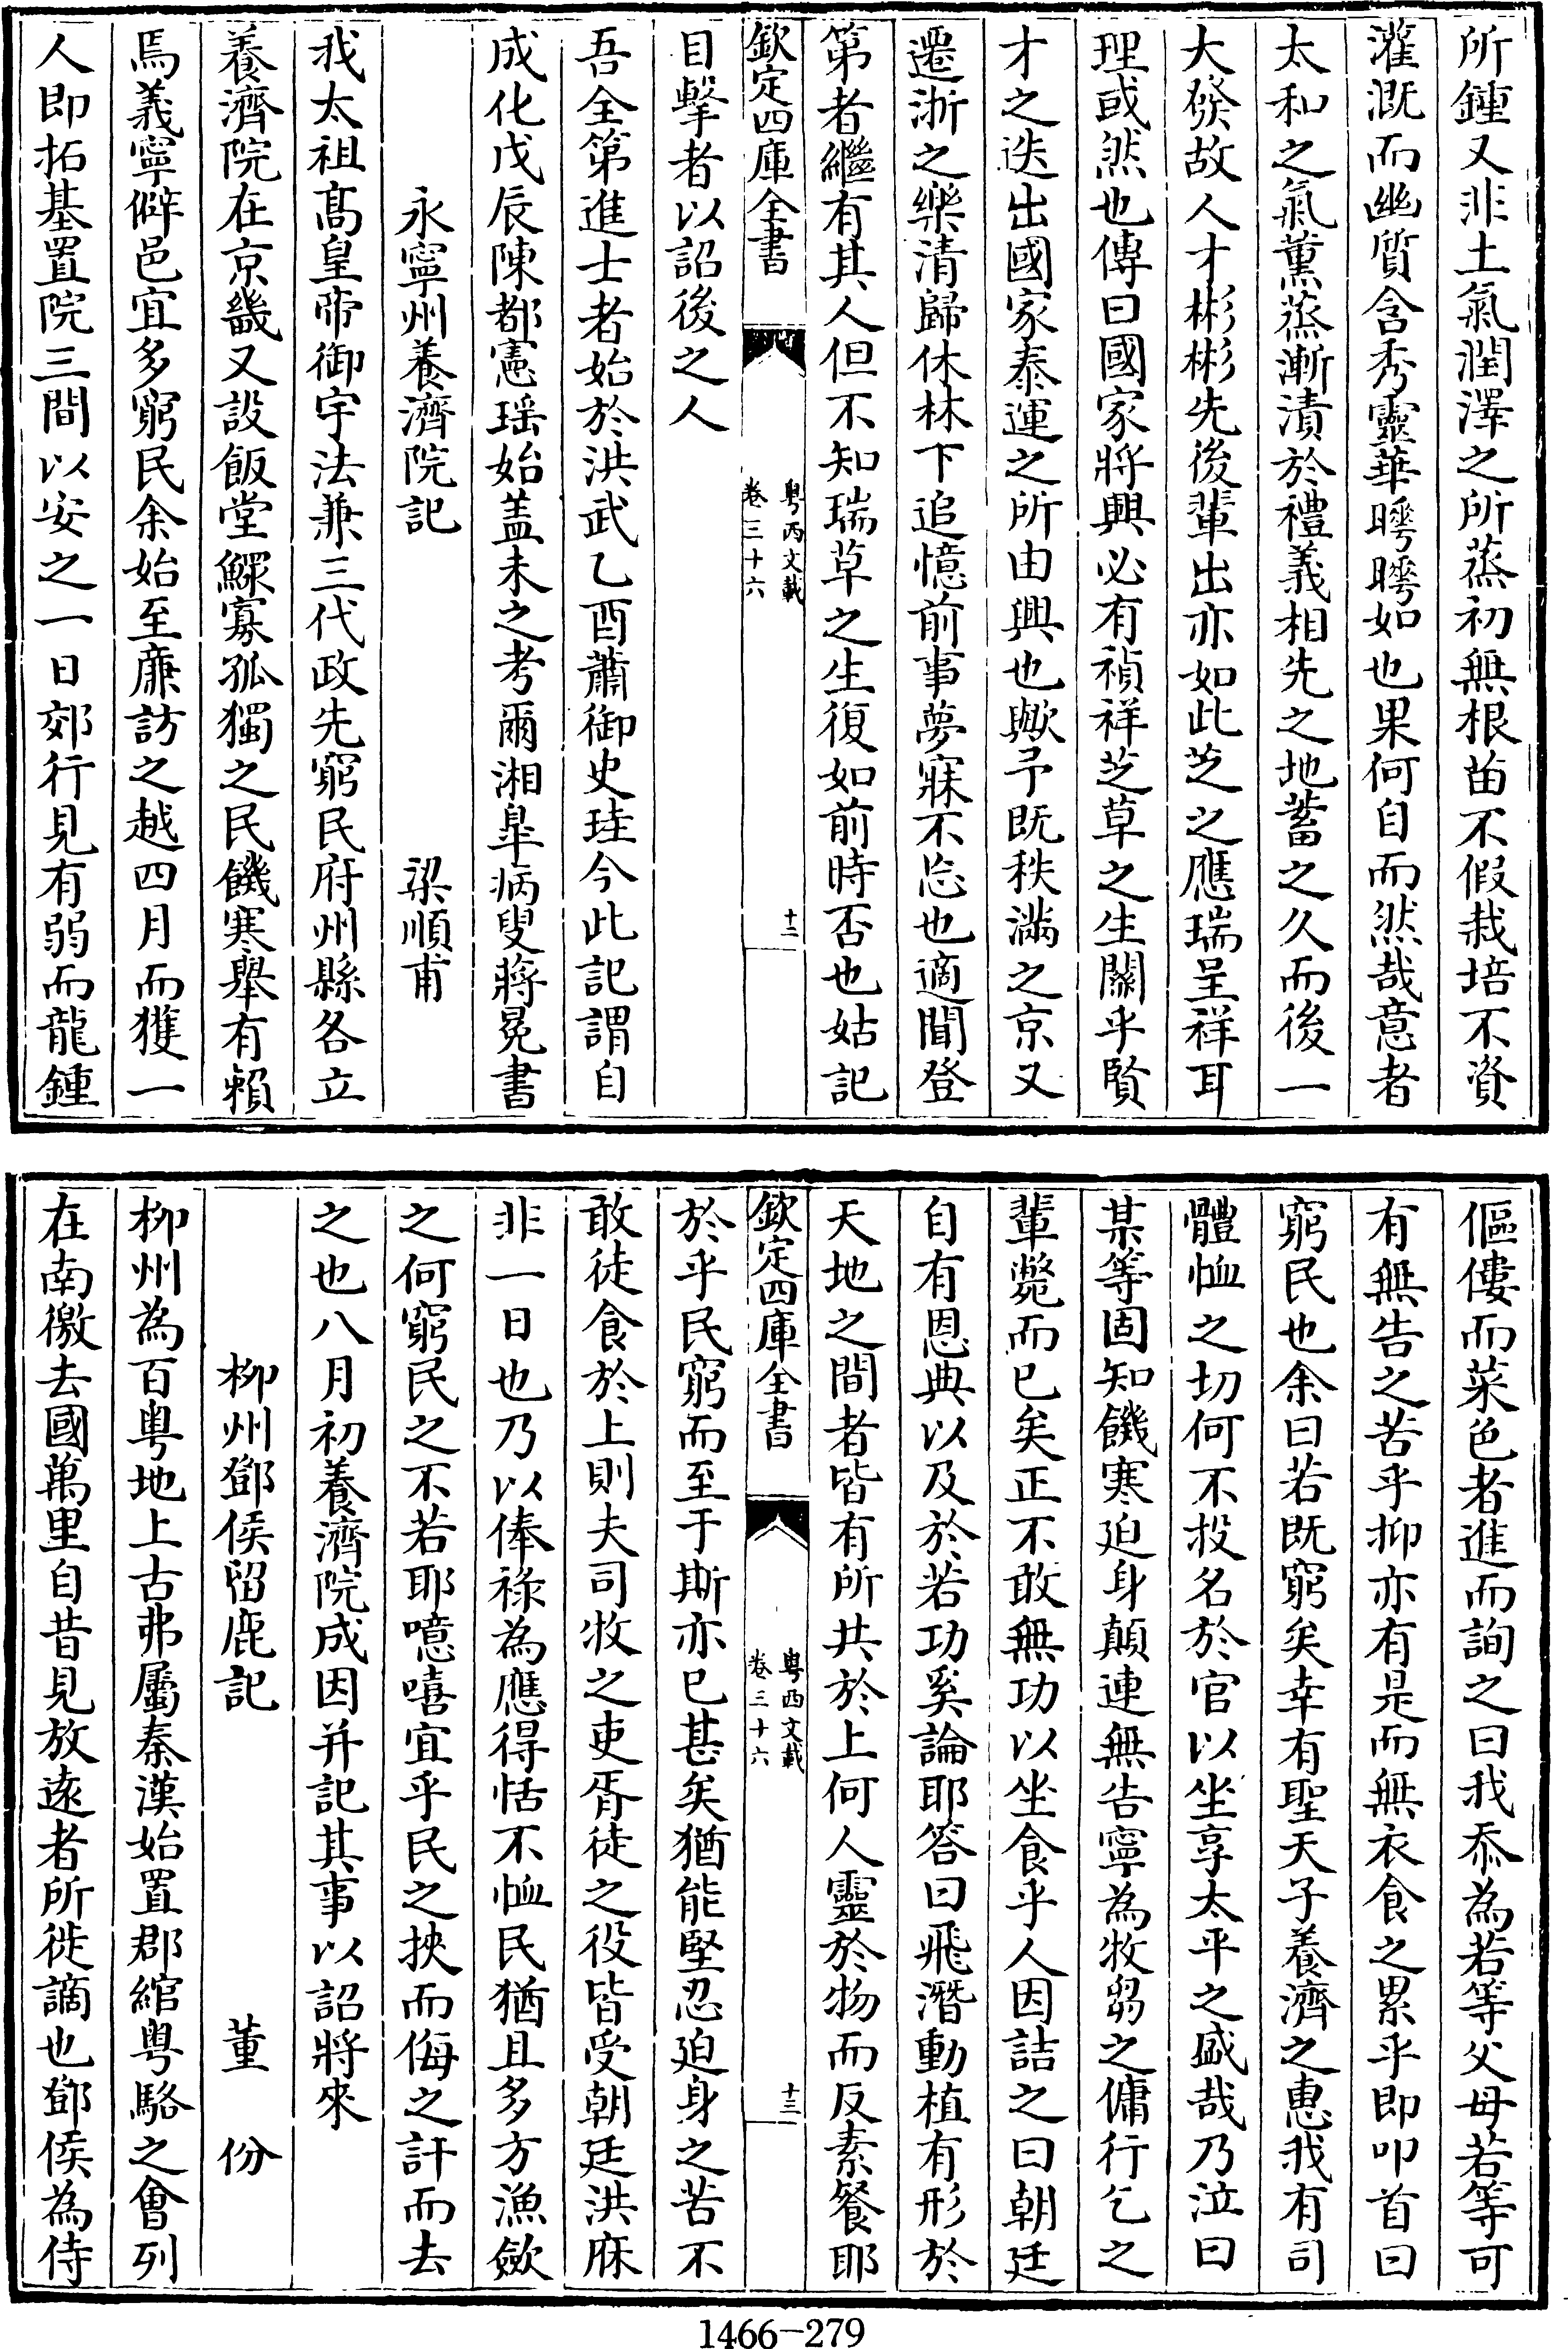 所鍾又非土氣潤澤之所蒸初無根苗不假栽培不資
灌溉而幽質含秀靈華曄曄如也果何自而然哉意者
太和之氣薰蒸漸漬於禮義相先之地蓄之久而後一
大發故人才彬彬先後輩出亦如此芝之應瑞呈祥耳
理或然也傳曰國家將興必有禎祥芝草之生關乎賢
才之迭出國家泰運之所由興也歟予既秩滿之京又
遷浙之樂清歸休林下追憶前事夢寐不忘也適聞登
第者繼有其人但不知瑞草之生復如前時否也姑記
欽定四庫全書
粵西文載
卷三十六
十二
目擊者以詔後之人
吾全第進士者始於洪武乙酉蕭御史珪今此記謂自
成化戊辰陳都憲瑶始蓋未之考爾湘臯病叟蔣冕書
永寧州養濟院記 梁順甫
我太祖高皇帝御宇法兼三代政先窮民府州縣各立
養濟院在京畿又設飯堂鰥寡孤獨之民饑寒舉有賴
焉義寧僻邑宜多窮民余始至亷訪之越四月而獲一
人即拓基置院三間以安之一日郊行見有弱而龍鍾
傴僂而菜色者進而詢之曰我忝為若等父母若等可
有無告之苦乎抑亦有是而無衣食之累乎即叩首曰
窮民也余曰若既窮矣幸有聖天子養濟之惠我有司
體恤之切何不投名於官以坐享太平之盛哉乃泣曰
某等固知饑寒迫身顛連無告寧為牧芻之傭行乞之
輩斃而已矣正不敢無功以坐食乎人因詰之曰朝廷
自有恩典以及於若功奚論耶答曰飛潛動植有形於
天地之間者皆有所共於上何人靈於物而反素餐耶
欽定四庫全書
粵西文載
卷三十六
十三
於乎民窮而至于斯亦已甚矣猶能堅忍迫身之苦不
敢徒食於上則夫司牧之吏胥徒之役皆受朝廷洪庥
非一日也乃以俸祿為應得恬不恤民猶且多方漁斂
之何窮民之不若耶噫嘻宜乎民之挾而侮之訐而去
之也八月初養濟院成因并記其事以詔將來
柳州鄧侯留鹿記 董份
柳州為百粵地上古弗屬秦漢始置郡綰粵駱之會列
在南徼去國萬里自昔見放逺者所徙謫也鄧侯為侍
1466-279